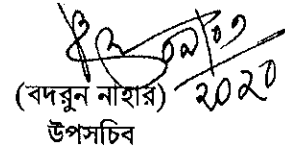 ২০২০
(বদরুন নাহার)
উপসচিব